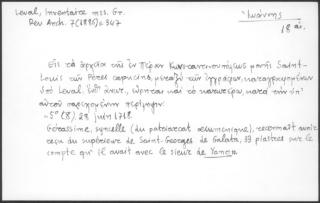 Laval, inventaire mss. Gr.
Rev. Arch. 7 (1886) = 347
Ἰωάννης
18 αἰ.
Εἰς τὰ ἀρχεῖα τῆς ἐν Πέραν Κωνσταντινουπόλεως μονῆς Saint-
Louis τῶν Pères capucins, μεταξὺ τῶν ἐγγράφων, καταγραφομένων
ὑπὸ Laval, εὕρηται καὶ τὸ κατωτέρω, κατὰ τὴν ὑπ'
αὐτοῦ παρεχομένην περίληψιν:
-5° (8). 28 juin 1718.
Gérassime, syncelle (du patriarcat œcuménique), reconnaît avoir
reçu du supérieur de Saint-Georges de Galata, 39 piastres sur le
compte qu'il avait avec le sieur de Yanin.